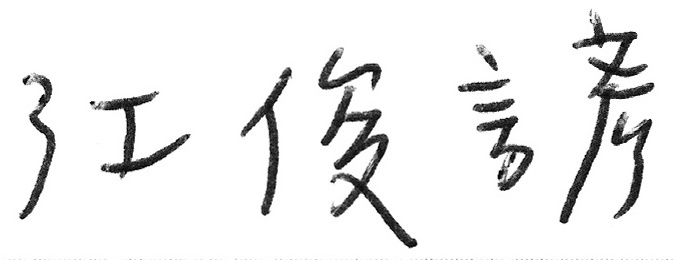 江俊諺